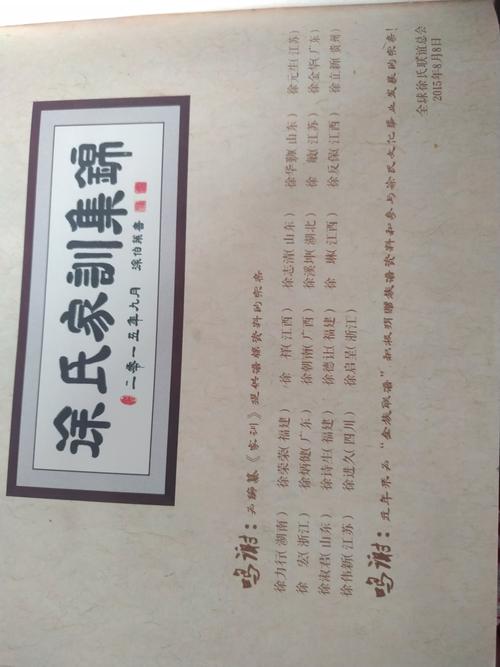 徐氏家訓集錦
二零一五年九月 徐伯策書
鸣谢：为编纂《家训》提供谱牒资料的宗亲
徐力行(湖南) 徐荣荣(福建) 徐 祥(江西) 徐志清(山东) 徐华勤(山东) 徐元生(江苏)
徐 宏(浙江) 徐炳健(广东) 徐朝南(广西) 徐溪坤(湖北) 徐 敏(江苏) 徐金华(广东)
徐淑君(山东) 徐诗生(福建) 徐德让(福建) 徐 琳(江西) 徐反保(江西) 徐立新(贵州)
徐伟新(江苏) 徐进久(四川) 徐启呈(浙江)
鸣谢：近年来为“全族联谱”积极捐赠族谱资料和参与徐氏文化事业发展的宗亲！
全球徐氏联谊总会
2015年8月8日